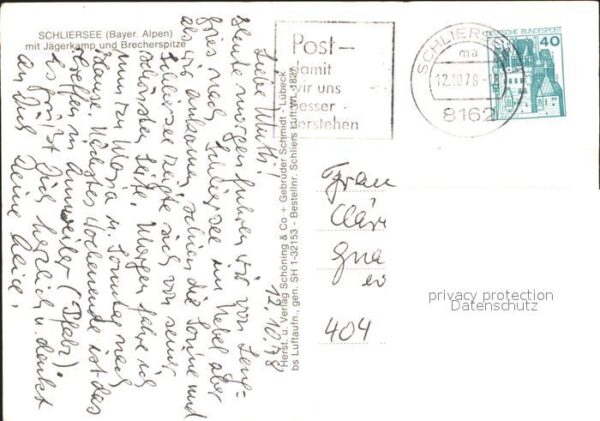 SCHLIERSEE (Bayer. Alpen)
mit Jägerkamp und Brecherspitze
12.10.78
Liebe Mutti!
Heute morgen fuhren wir von Leng-
gries nach Schliersee im Nebel aber
als wir ankamen, schien die Sonne und
Schliersee zeigte sich von seiner
schönsten Seite. Morgen fahre ich
nun zu Maria u. Sonntag nach
Hause. Nächstes Wochenende ist das
Treffen in Annweiler (Pfalz).
Es grüßt Dich herzlich u. denkt
an Dich Deine
Herst. u. Verlag Schöning & Co + Gebrüder Schmidt - Lübeck
bs Luftaufn., gen. SH 1-32153 - Bestellnr. Schliers Luft
Post-
damit
wir uns
besser
verstehen
SCHLIERSEE
ma
12.10.78
8162
DEUTSCHE BUNDESPOST
40
Frau
Kläre
Gna
404
privacy protection
Datenschutz